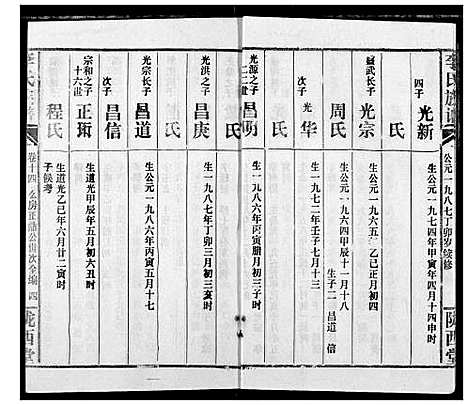 李氏族譜
公元一九八七丁卯岁续修
隴西堂
四子 光新 生公元一九七四年甲寅年四月十四申时
氏
益武长子 光宗 生公元一九六五乙巳正月四
周氏 生公元一九六四甲辰十一月十八 生子二 昌道 信
次子 光华 生公元一九七二年壬子七月十三
氏
光源之子 二二世 昌明 生公元一九八六年丙寅腊月初三子时
氏
光洪之子 昌庚 生公元一九八七年丁卯三月初三亥时
氏
光宗长子 昌道 生公元一九八六年丙寅五月十七
次子 昌信
宗和之子 十六世 正珩 生道光甲辰年五月初六丑时
程氏 生道光乙巳年六月廿二寅时
子候考
李氏族譜
卷十四 么房正鼎公世次全编 四
陇西堂